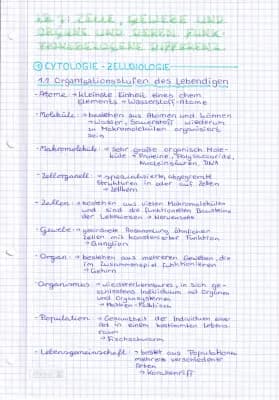 LE 7: ZELLE, GEWEBE UND
ORGANE UND DEREN FUNK-
① CYTOLOGIE - ZELLBIOLOGIE
1.1 Organisationsstufen des Lebendigen
- Atome → kleinste Einheit eines chem.
Elements → Wasserstoff-Atome
- Moleküle → bestehen aus Atomen und können
→ Wasser, Sauerstoff wiederum
zu Makromolekülen organisiert
sein
- Makromoleküle → sehr große organisch Mole-
küle → Proteine, Polysaccharide,
Nucleinsäuren, DNA
- Zellorganell → spezialisierte, abgegrenzte
Strukturen in oder auf Zellen
→ Zellkern
- Zellen → bestehen aus vielen Makromoleküle
und sind die funktionellen Bausteine
der Lebewesen → Nervenzelle
- Gewebe → geordnete Ansammlung ähnlicher
Zellen mit koordinierter Funktion
→ Ganglion
- Organ → bestehen aus mehreren Geweben, die
im Zusammenspiel funktionieren
→ Gehirn
- Organismus → wiedererkennbares, in sich ge-
schlossenes Individuum mit Organen
und Organsystemen
- Population → Gesamtheit der Individuen einer
Art in einem bestimmten Lebens-
raum
→ Fischschwarm
- Lebensgemeinschaft → besteht aus Populationen
mehrere verschiedener
Arten
→ Korallenriff